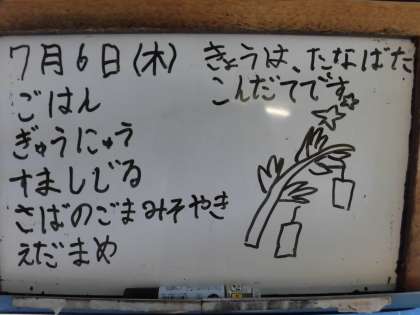 7月6日(木)
ごはん
ぎゅうにゅう
すましじる
さばのごまみそやき
えだまめ
きょうは、たなばた
こんだてです